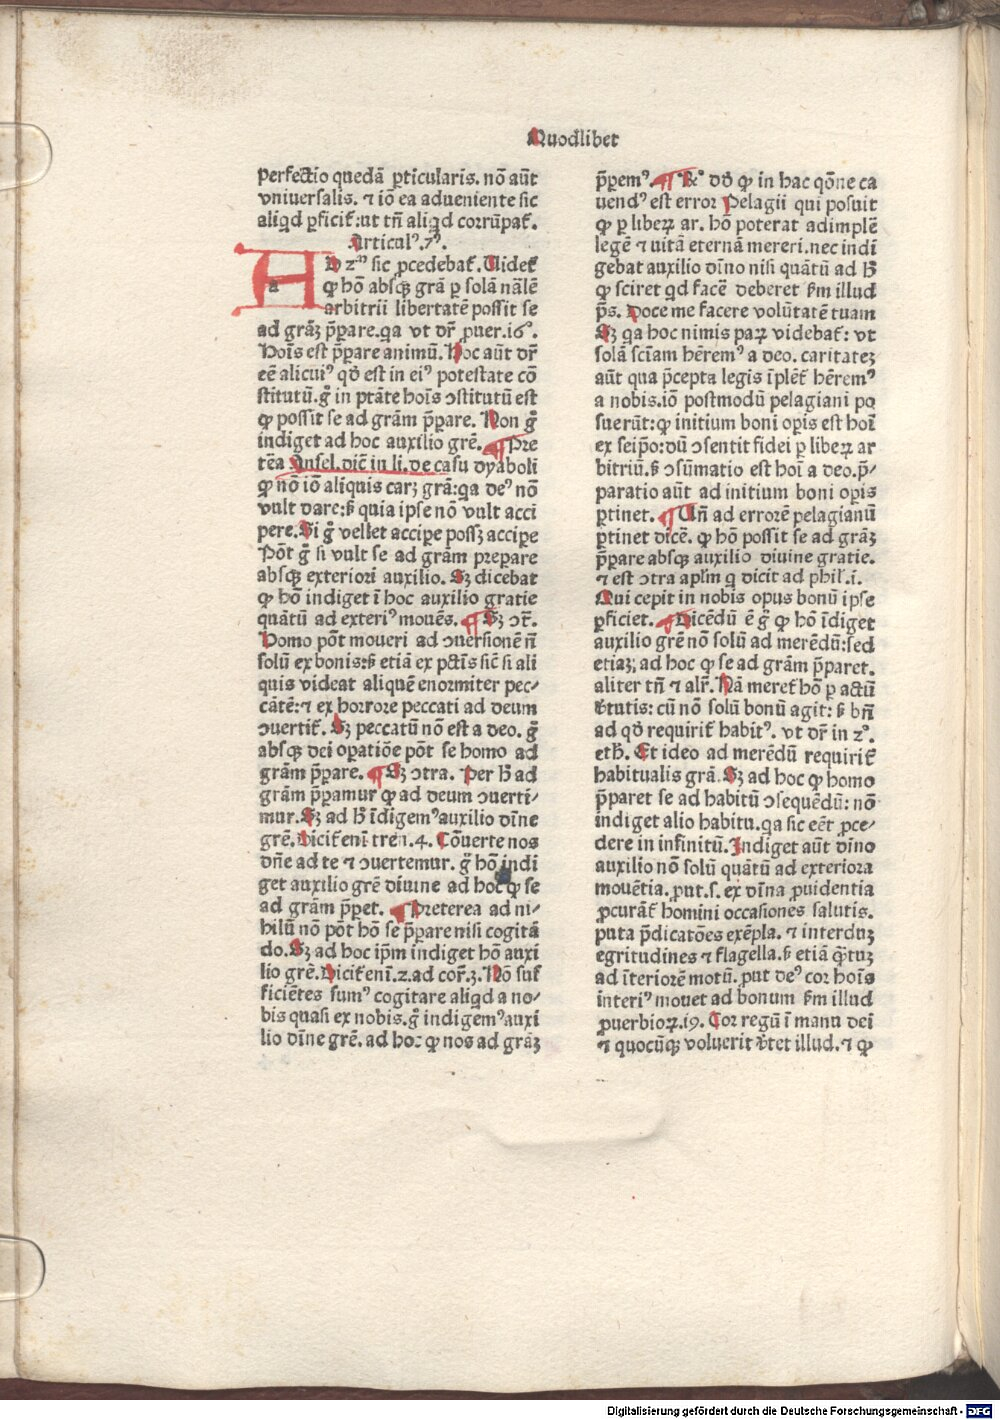 Quodlibet
perfectio quedã ꝑticularis. nõ aũt
vniuersalis. ⁊ iõ ea adueniente sic
aliqd ꝑficit᷑:ut tñ aliqd corrũpat᷑.
Articulꝰ.7ꝰ.
AD 2ᵐ sic ꝓcedebat᷑. Uidet᷑
ꝙ hõ absqꝫ grã ꝑ solã nãlẽ
arbitrii libertatẽ possit se
ad grãꝫ p̃pare.qa vt dr̃ ꝓuer.16ꝰ.
Hoĩs est p̃pare animũ. Hoc aũt dr̃
eẽ alicuiꝰ qđ est in eiꝰ potestate cõ
stitutũ.g̃ in ptãte hoĩs ↄstitutũ est
ꝙ possit se ad grãm p̃pare. Non g̃
indiget ad hoc auxilio grẽ. ¶ Pre
terẽa Ansel.dic̃ in li.de casu dyaboli
ꝙ nõ iõ aliquis carꝫ grã:qa deꝰ nõ
vult dare:ß quia ipse nõ vult acci
pere.Si g̃ vellet accipe possꝫ accipe
Põt g̃ si vult se ad grãm prepare
absqꝫ exteriori auxilio. Sꝫ dicebat
ꝙ hõ indiget ĩ hoc auxilio gratie
quãtũ ad exteriꝰ mouẽs. ¶ Sꝫ ↄt᷑.
Homo põt moueri ad ↄuersionẽ ñ
solũ ex bonis:ß etiã ex pctĩs sic̃ si ali
quis videat aliquẽ enormiter pec⸗
cãtẽ:⁊ ex horrore peccati ad deum
ↄuertit᷑. Sꝫ peccatũ nõ est a deo. g̃
absqꝫ dei oꝑatiõe põt se homo ad
grãm p̃pare. ¶ Sꝫ ↄtra. Per h̃ ad
grãm p̃pamur ꝙ ad deum ↄuerti⸗
mur.Sꝫ ad h̃ ĩdigemꝰauxilio dĩne
grẽ.Dicit᷑ enĩ tren.4. Cõuerte nos
dñe ad te ⁊ ↄuertemur. g̃ hõ indi
get auxilio grẽ diuine ad hoc ꝙ se
ad grãm p̃pet. ¶ Preterea ad ni⸗
hilũ nõ põt hõ se p̃pare nisi cogitã
do.Sꝫ ad hoc ip̃m indiget hõ auxi
lio grẽ.Dicit᷑ enĩ.2.ad cor̃.3.Nõ suf
ficiẽtes sumꝰ cogitare aliqd a no⸗
bis quasi ex nobis.g̃ indigemꝰauxi
lio dĩne grẽ. ad hoc ꝙ nos ad grãꝫ
p̃pemꝰ. ¶ Rº dđ ꝙ in hac qõne ca
uendꝰ est error Pelagii qui posuit
ꝙ ꝑ liberꝝ ar. hõ poterat adimplẽ
legẽ ⁊ uitã eternã mereri.nec indi
gebat auxilio dĩno nisi quãtũ ad h̃
ꝙ sciret qd facẽ deberet ẜm illud
p̃s. Doce me facere volũtatẽ tuam
Sꝫ qa hoc nimis paꝝ videbat᷑: vt
solã sciam hẽremꝰ a deo. caritateꝫ
aũt qua p̃cepta legis ĩplẽt᷑ hẽremꝰ
a nobis.iõ postmodũ pelagiani po
suerũt:ꝙ initium boni oꝑis est hoĩ
ex seip̃o:dũ ↄsentit fidei ꝑ liberꝝ ar
bitriũ.ß ↄsũmatio est hoĩ a deo.p̃⸗
paratio aũt ad initium boni oꝑis
ꝑtinet. ¶ Uñ ad errorẽ pelagianũ
ꝑtinet dicẽ. ꝙ hõ possit se ad grãꝫ
p̃pare absqꝫ auxilio diuine gratie.
⁊ est ↄtra apl̃m q dicit ad phil̃.i.
Qui cepit in nobis opus bonũ ipse
ꝑficiet. ¶ Dicẽdũ ẽ g̃ ꝙ hõ ĩdiget
auxilio grẽ nõ solũ ad merẽdũ:sed
etiaꝫ, ad hoc ꝙ se ad grãm p̃paret.
aliter tñ ⁊ alr̃. Nã meret᷑ hõ ꝑ actũ
v̓tutis: cũ nõ solũ bonũ agit: ß bñ
ad qđ requirit᷑ habitꝰ. vt dr̃ in 2ꝰ.
eth̃. Et ideo ad merẽdũ requirit᷑
habitualis grã. Sꝫ ad hoc ꝙ homo
p̃paret se ad habitũ ↄsequẽdũ: nõ
indiget alio habitu.qa sic eẽt ꝓce⸗
dere in infinitũ. Indiget aũt dĩno
auxilio nõ solũ quãtũ ad exteriora
mouẽtia. ꝓut.s. ex dĩna ꝓuidentia
ꝓcurãt᷑ homini occasiones salutis.
puta p̃dicatões exẽpla. ⁊ interduꝫ
egritudines ⁊ flagella.ß etiã q̃tuꝫ
ad ĩteriorẽ motũ. ꝓut deꝰ cor hoĩs
interiꝰ mouet ad bonum ẜm illud
ꝓuerbioꝝ.19. Cor regũ ĩ manu dei
⁊ quocũqꝫ voluerit v̓tet illud. ⁊ ꝙ
Digitalisierung gefördert durch die Deutsche Forschungsgemeinschaft - DFG